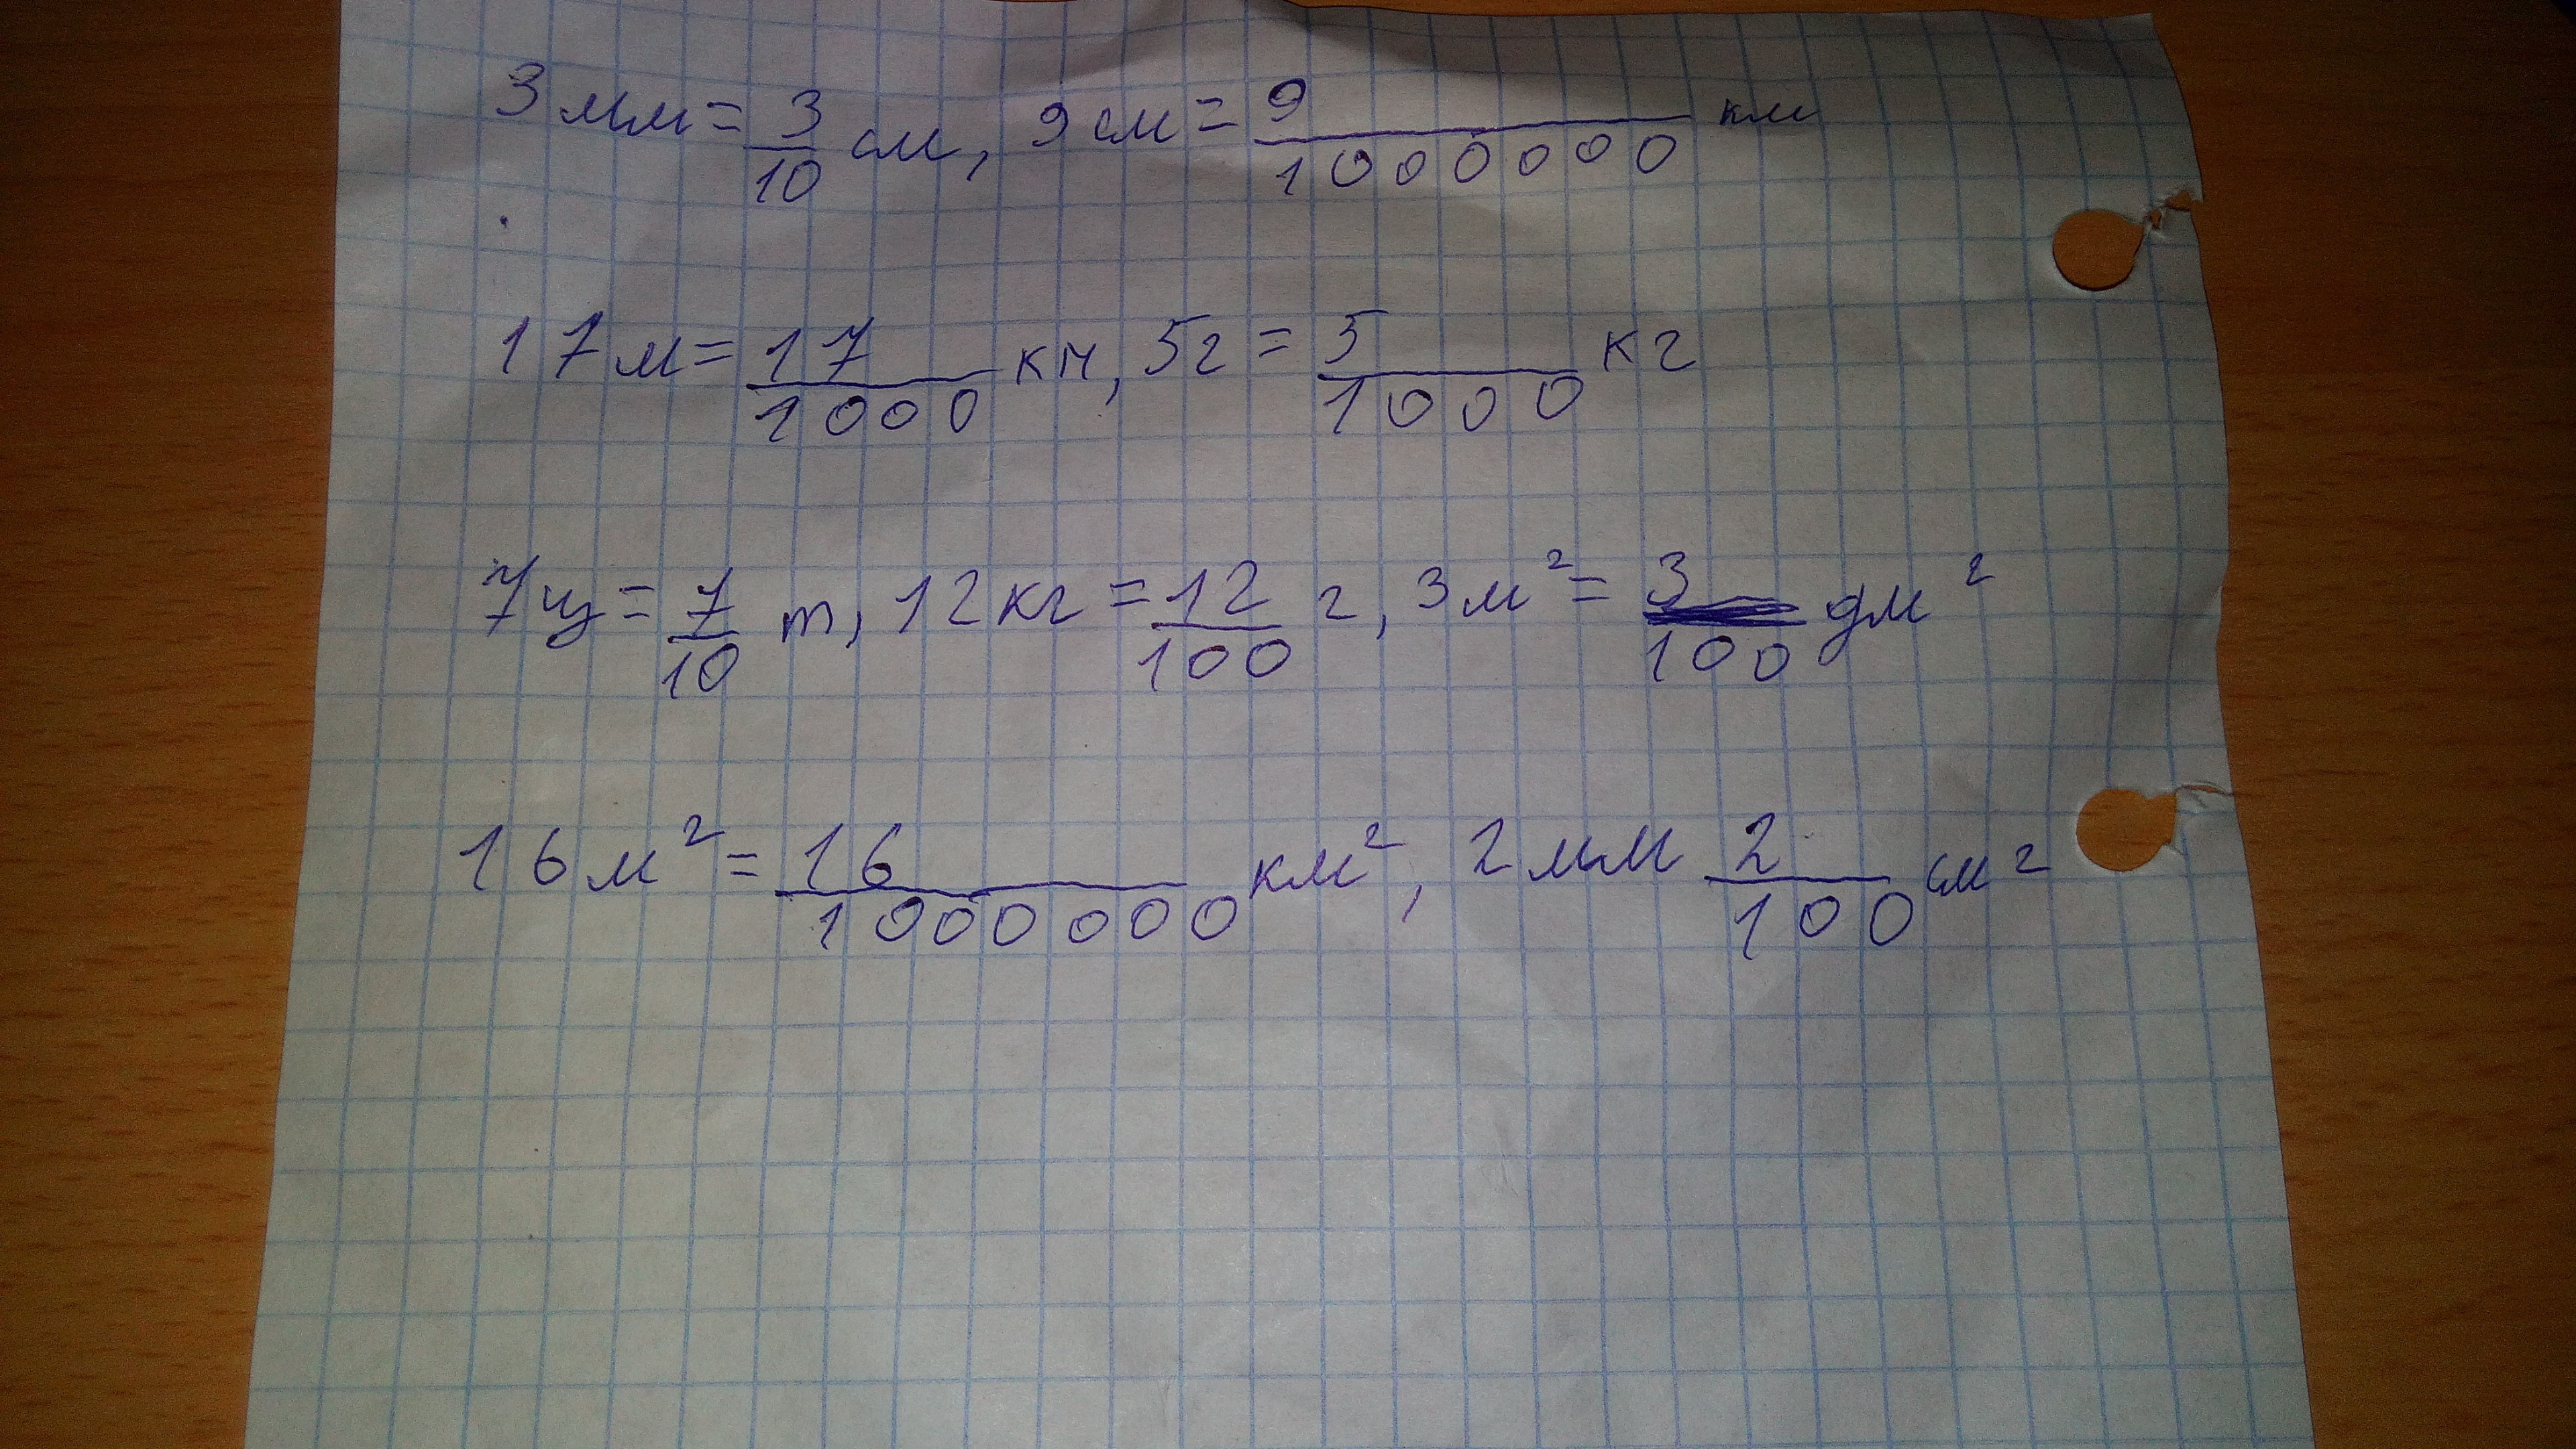 3 мм = 3/10 см, 9 см = 9/1000000 км
17 м = 17/1000 км, 5 г = 5/1000 кг
7 ц = 7/10 т, 12 кг = 12/100 г, 3 м² = 3/100 дм²
16 м² = 16/1000000 км², 2 мм 2/100 см²